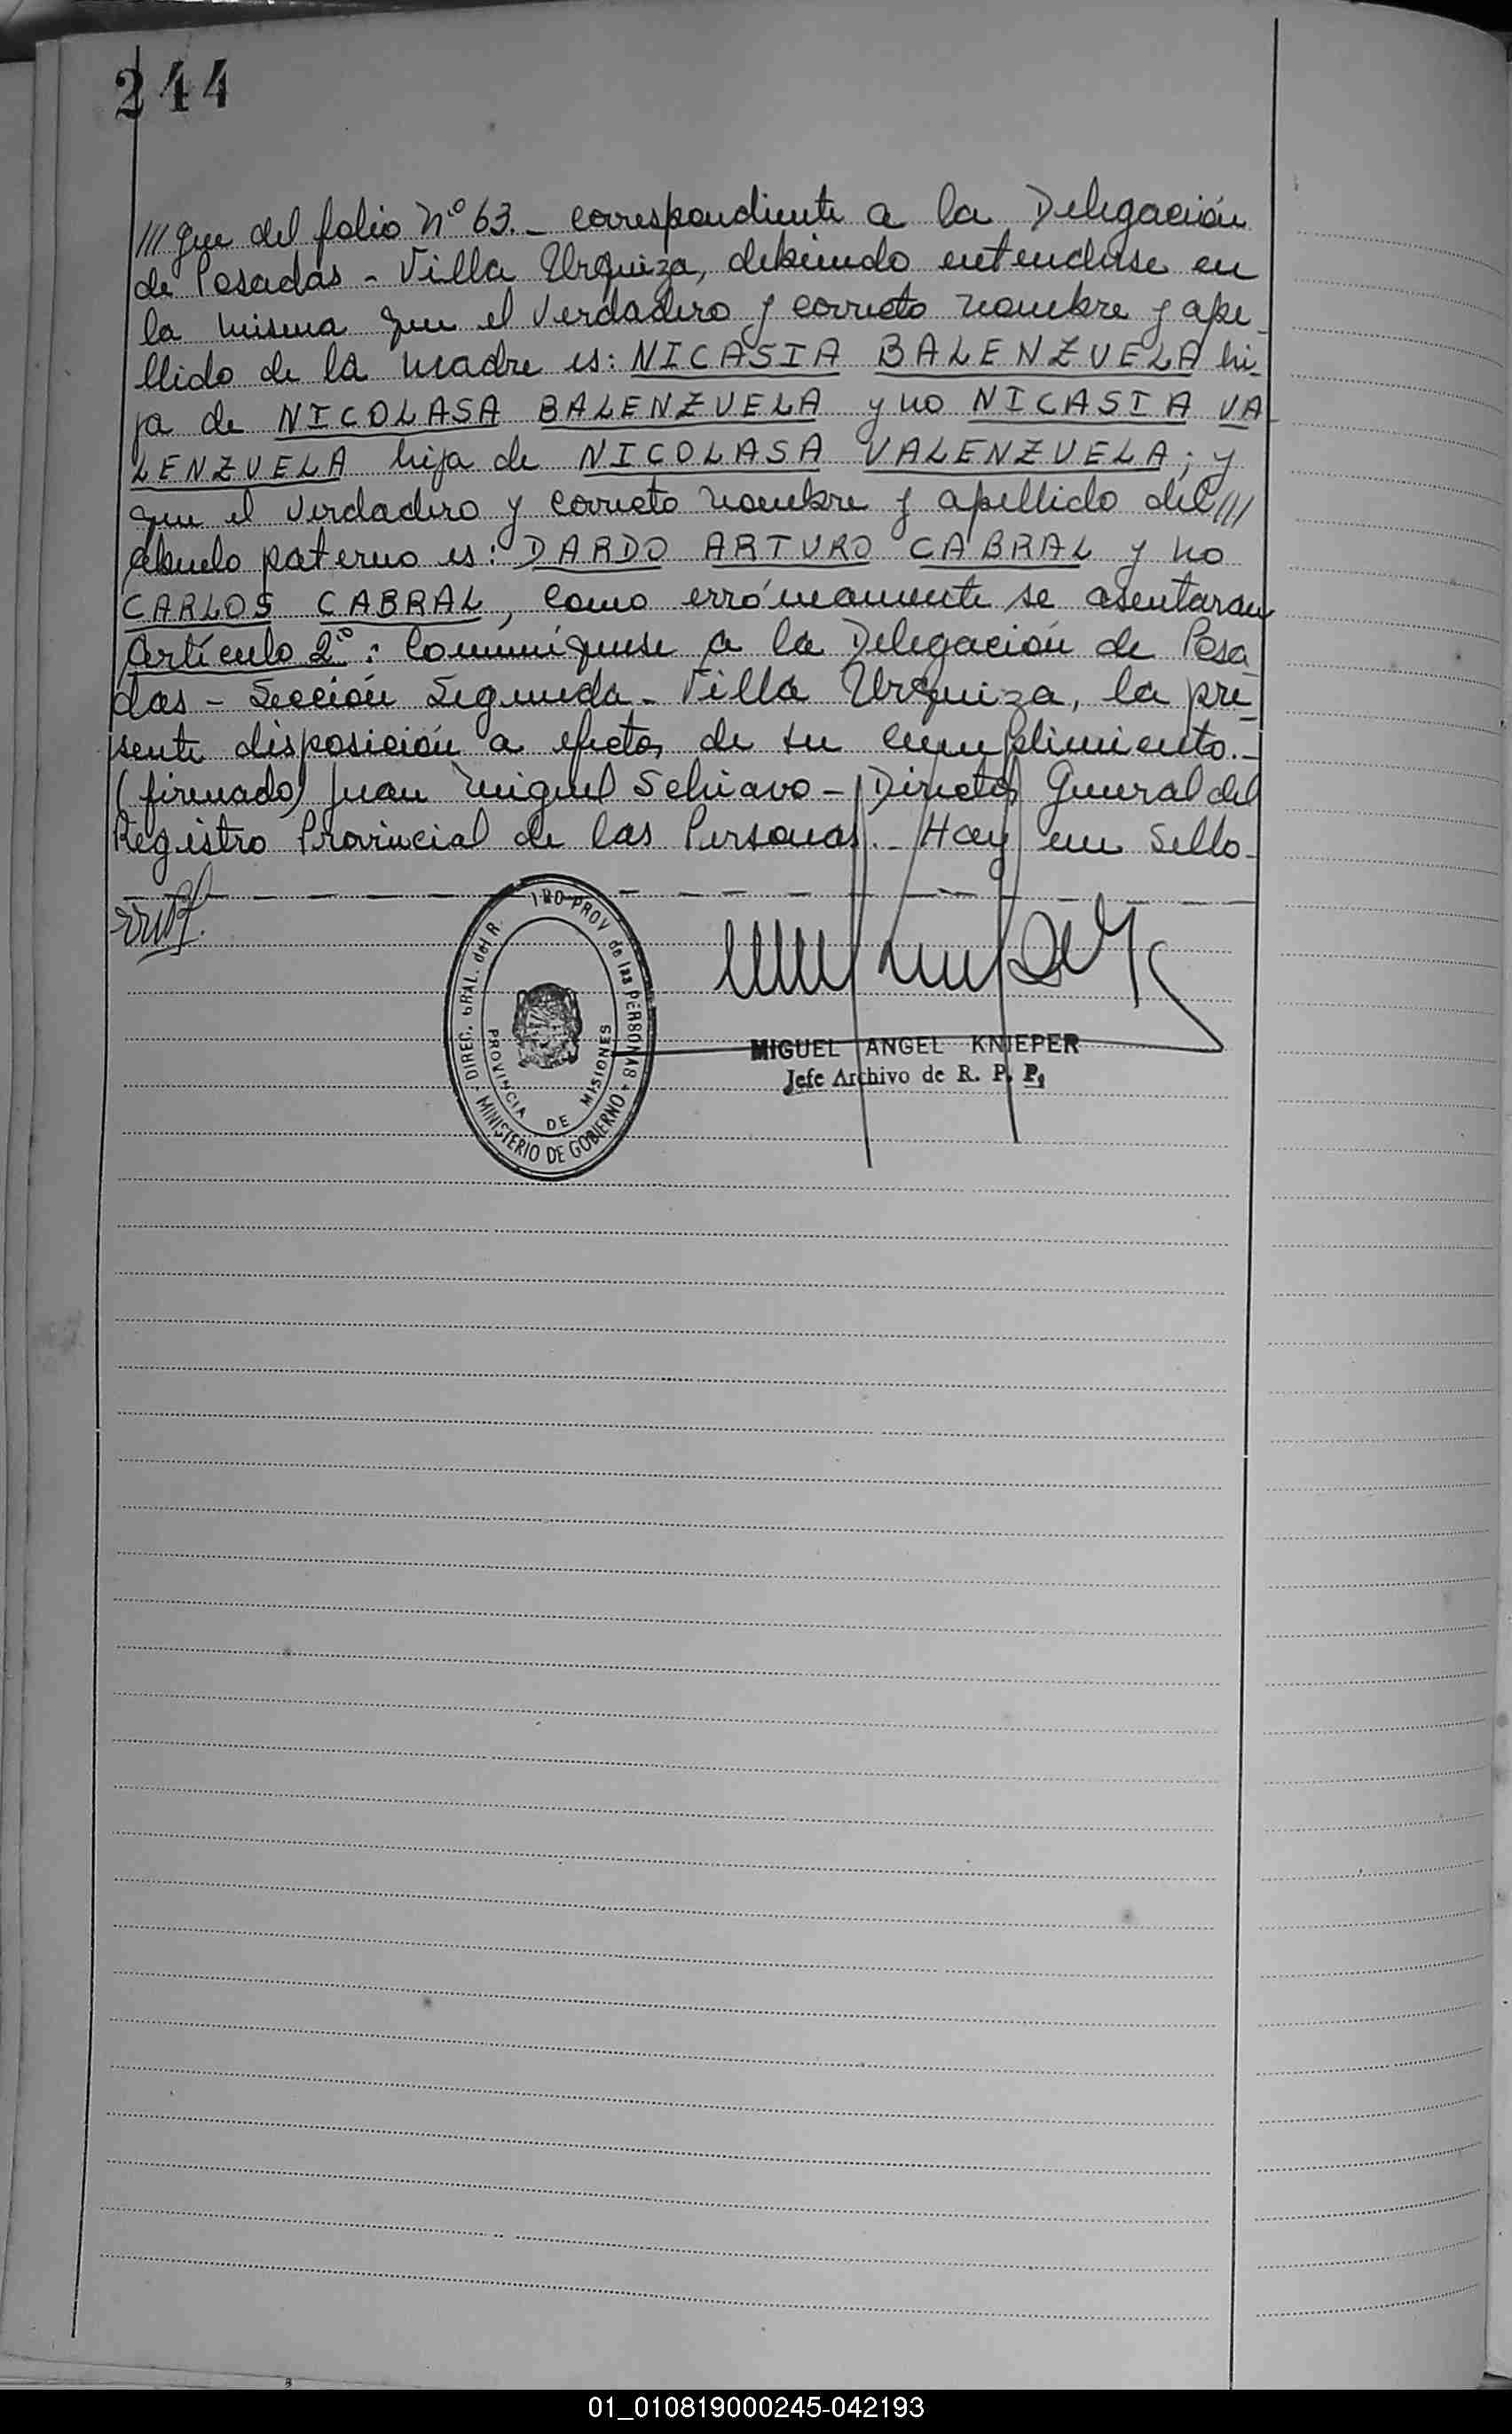 244
/// que del folio Nº 63.- correspondiente a la Delegación
de Posadas - Villa Urquiza, debiendo entenderse en
la misma que el verdadero y correcto nombre y ape-
llido de la madre es: NICASIA BALENZUELA hi-
ja de NICOLASA BALENZUELA y no NICASIA VA-
LENZUELA hija de NICOLASA VALENZUELA; y
que el verdadero y correcto nombre y apellido del ///
abuelo paterno es: DARDO ARTURO CABRAL y no
CARLOS CABRAL, como erróneamente se asentaran
Artículo 2º: Comuníquese a la Delegación de Posa-
das - Sección Segunda - Villa Urquiza, la pre-
sente disposición a efectos de su cumplimiento.-
(firmado) Juan Miguel Schiavo - Director General del
Registro Provincial de las Personas.- Hay un Sello-
DIREC. GRAL. del R. PROV de las PERSONAS
MINISTERIO DE GOBIERNO
PROVINCIA DE MISIONES
MIGUEL ANGEL KNIEPER
Jefe Archivo de R. P. P.
01_010819000245-042193